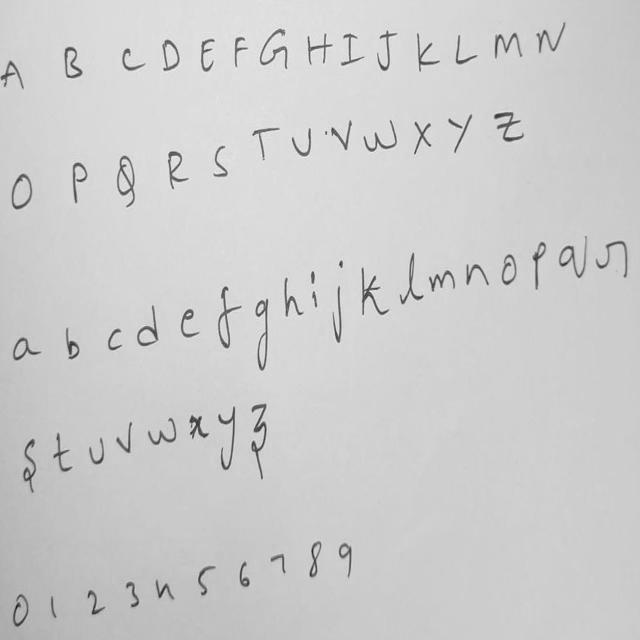 A B C D E F G H I J K L M N
O P Q R S T U V W X Y Z
a b c d e f g h i j k l m n o p q r
s t u v w x y z
0 1 2 3 4 5 6 7 8 9